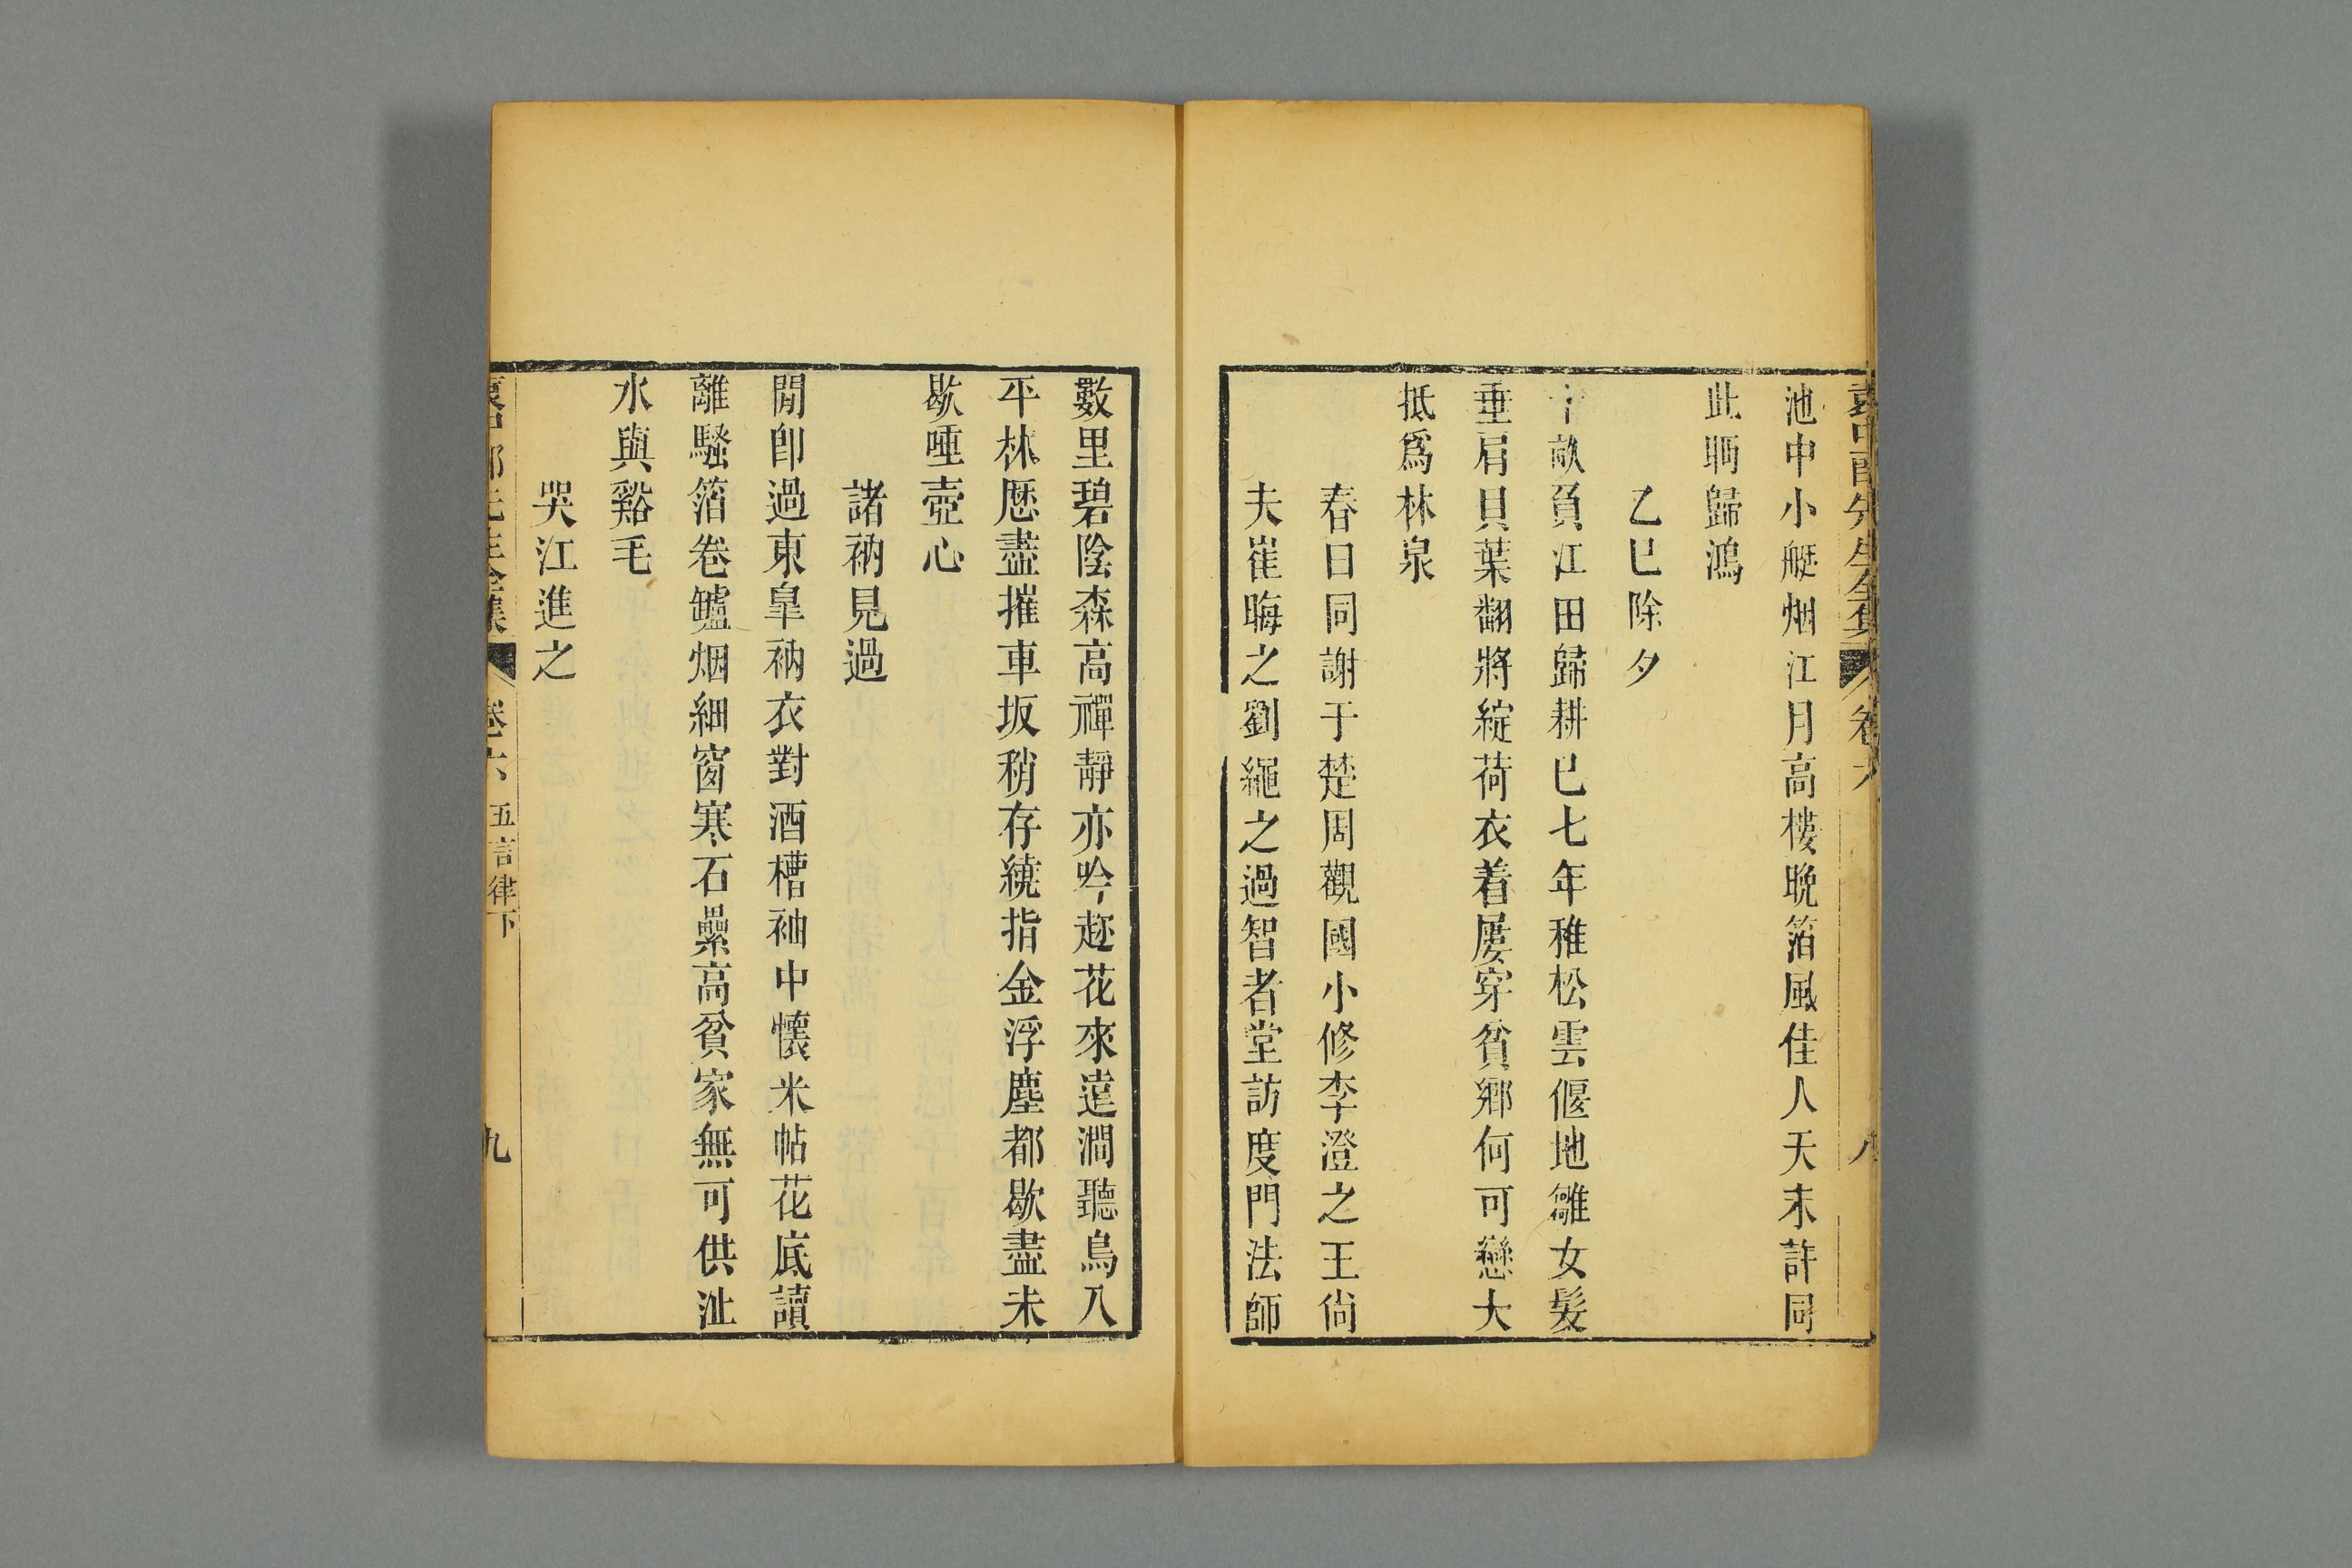 袁中郎先生全集 卷六 八
池中小艇烟江月高樓晚箔風佳人天末許同
此眄歸鴻
乙巳除夕
十畝負江田歸耕已七年稚松雲偃地雛女髮
垂肩貝葉翻將綻荷衣着屢穿貧鄉何可戀大
抵爲林泉
春日同謝于楚周觀國小修李澄之王尙
夫崔晦之劉繩之過智者堂訪度門法師
數里碧陰森高禪靜亦吟趂花來遠澗聽鳥入
平林歷盡摧車坂稍存繞指金浮塵都歇盡未
歇唾壺心
諸衲見過
閒卽過東臯衲衣對酒槽袖中懷米帖花底讀
離騷箔卷罏烟細窗寒石纍高貧家無可供沚
水與谿毛
哭江進之
袁中郎先生全集 卷六 五言律下 九